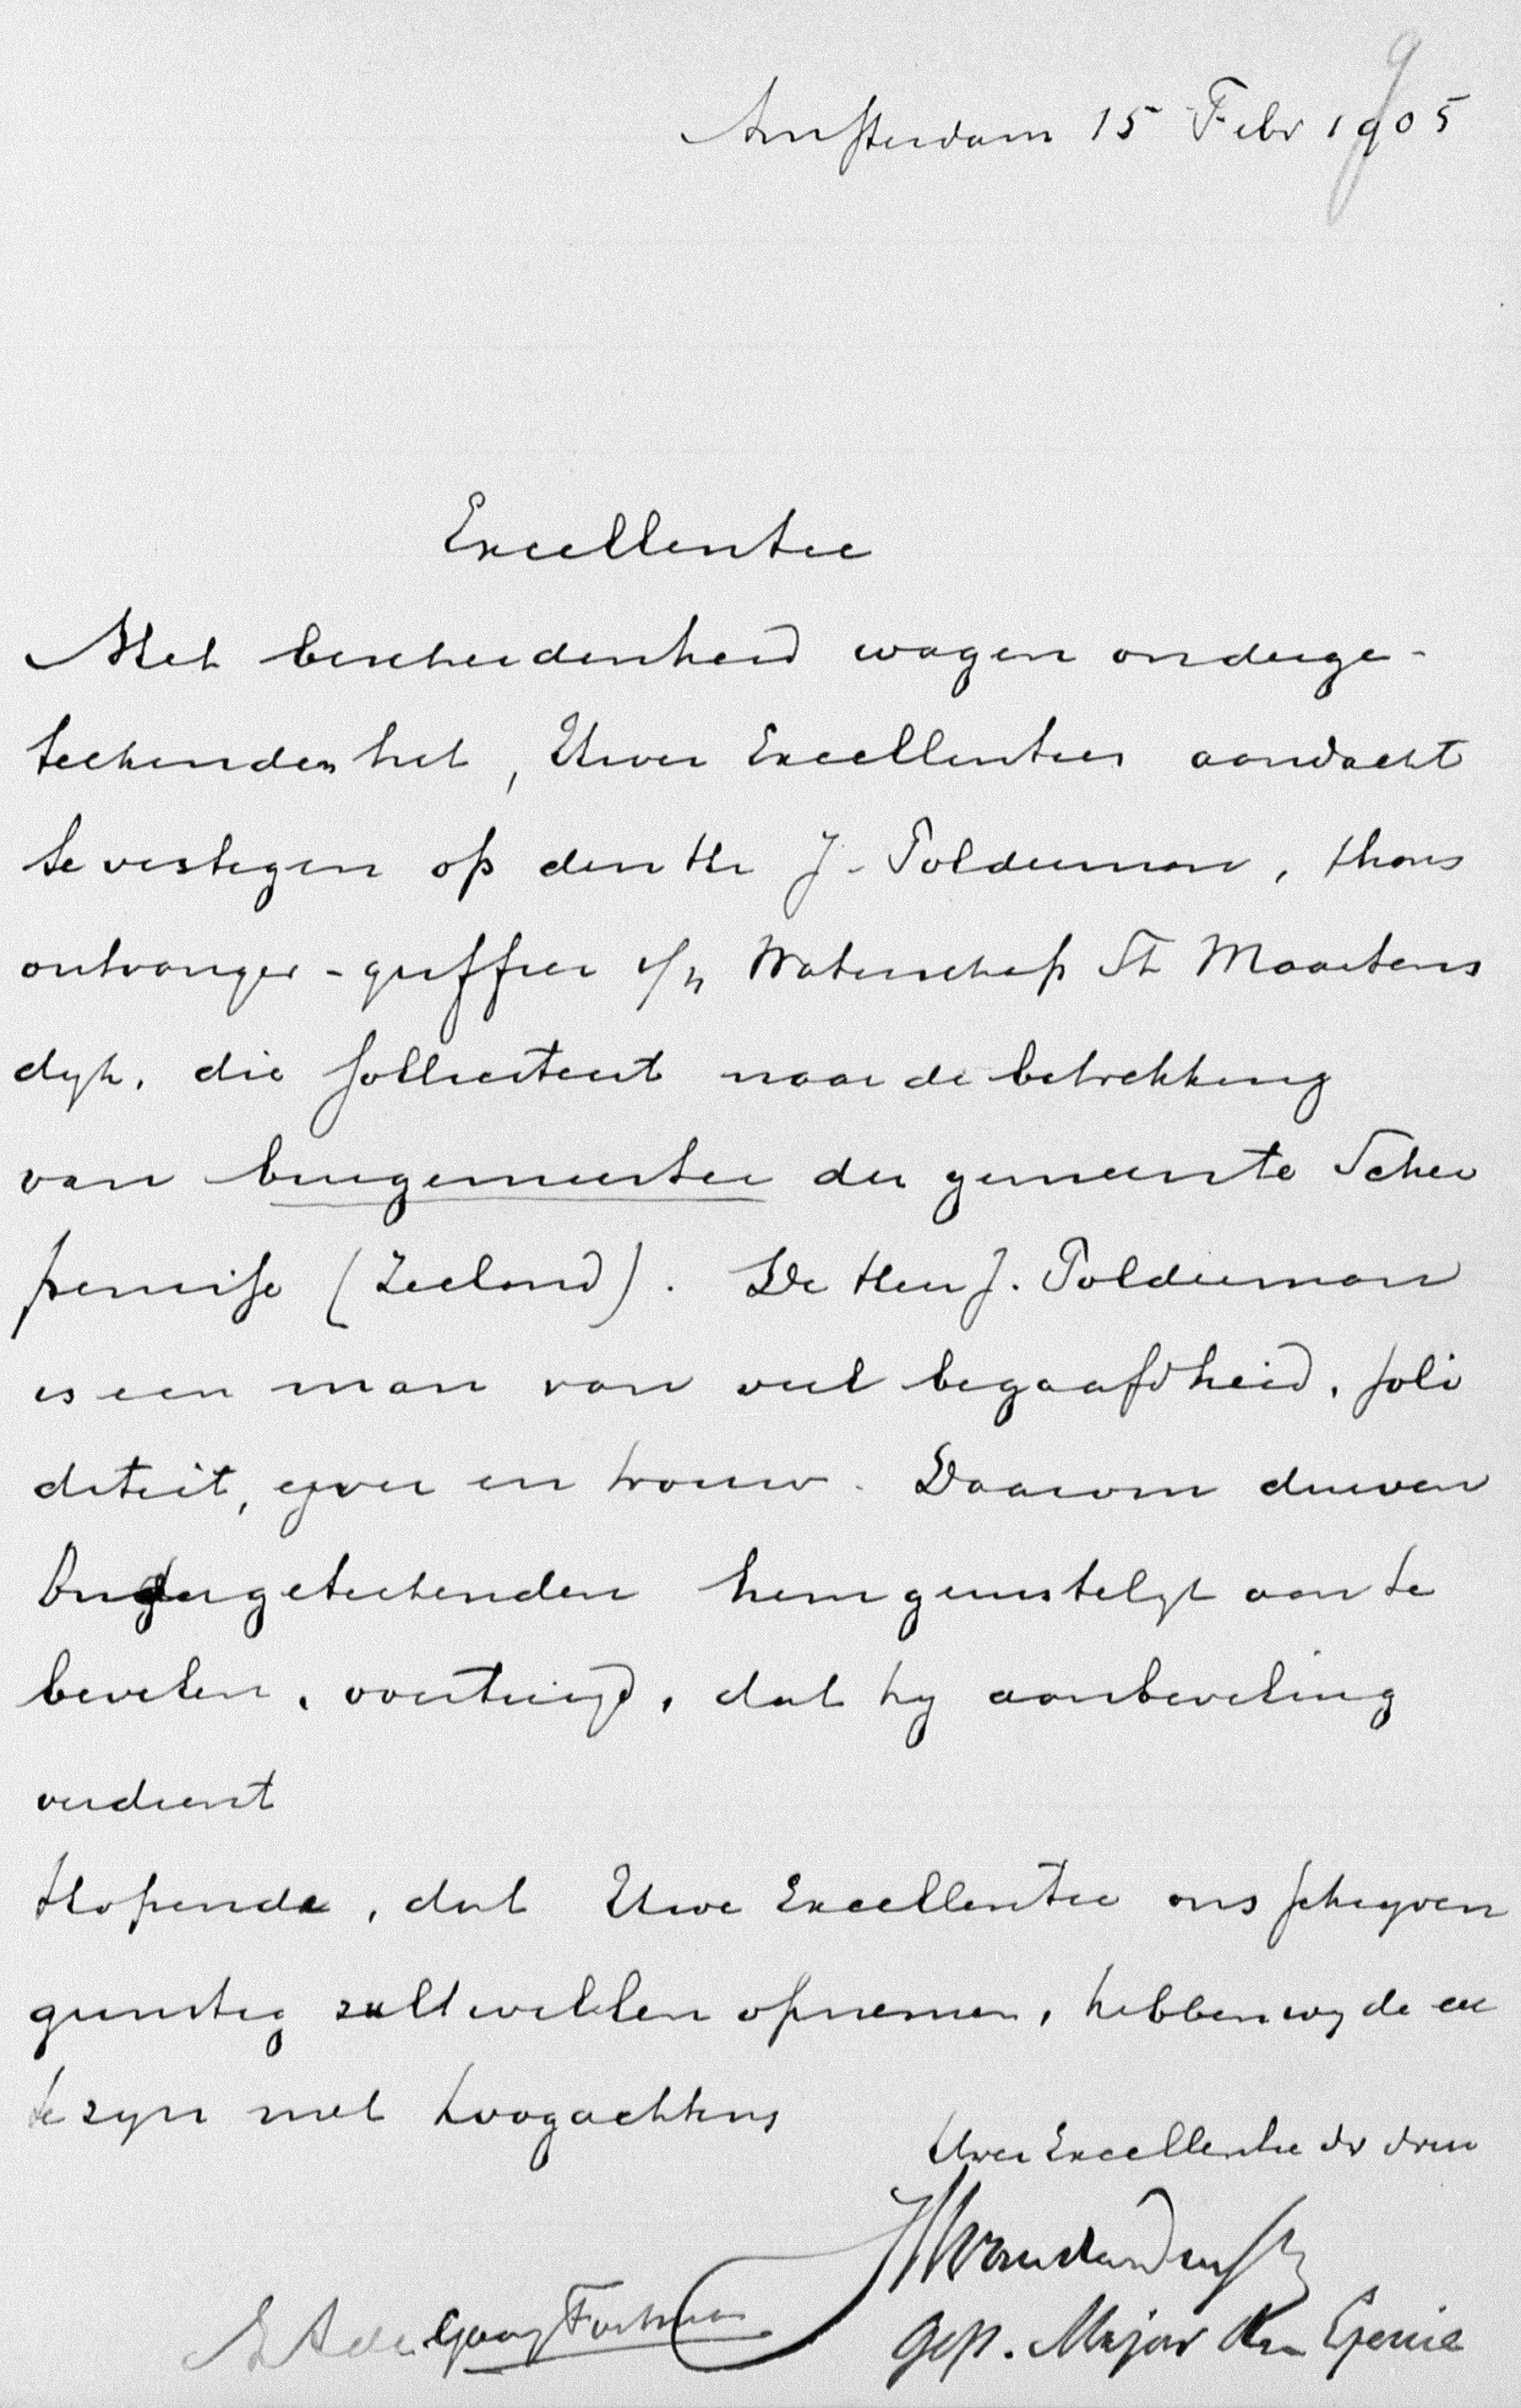 9
Amsterdam 15 Febr 1905
Excellentie
Met bescheidenheid wagen onderge-
teekenden het, Uwer Excellenties aandacht
te vestigen op den Hr J. Polderman, thans
ontvanger-griffier v/h Waterschap St Maartens
dijk, die solliciteert naar de betrekking
van burgemeester der gemeente Scher
penisse (Zeeland). De Heer J. Polderman
is een man van veel begaafdheid, soli
diteit, ijver en trouw. Daarom durven
Ondergeteekenden hem gunstelijk aan te
bevelen, overtuigd, dat hij aanbeveling
verdient
Hopende, dat Uwe Excellentie ons schrijven
gunstig zult willen opnemen, hebben wij de eer
te zijn met hoogachting
Uwer Excellentie dw dren
de Gaay Fortman
Gep. Majoor der Genie